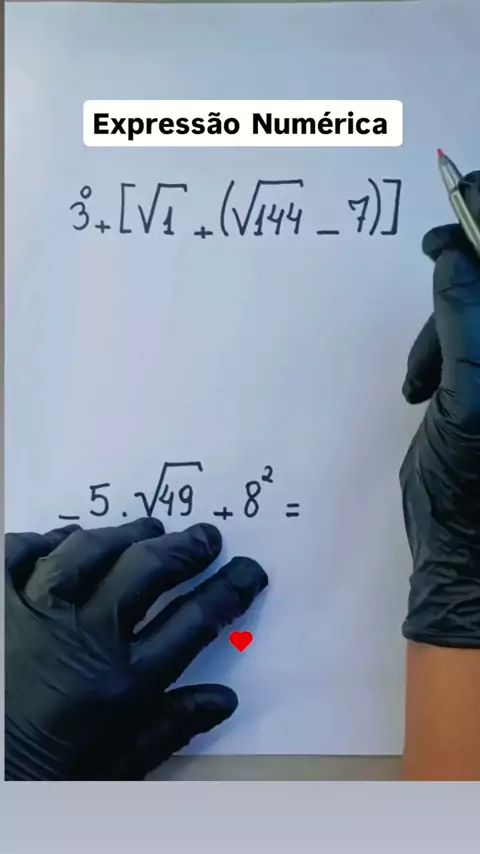 Expressão Numérica
3⁰ + [√1 + (√144 - 7)]
- 5 . √49 + 8² =